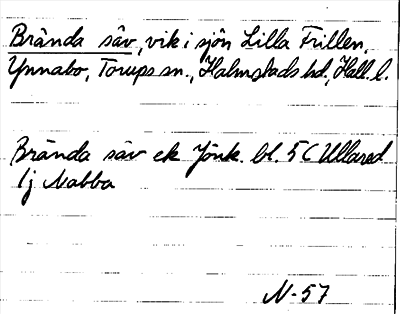 Brända säv, vik i sjön Lilla Frillen,
Ynnabo, Torups sn., Halmstads hd., Hall. l.
Brända säv ek Jönk. bl. 5C Ullared
lj Nabba
N-57